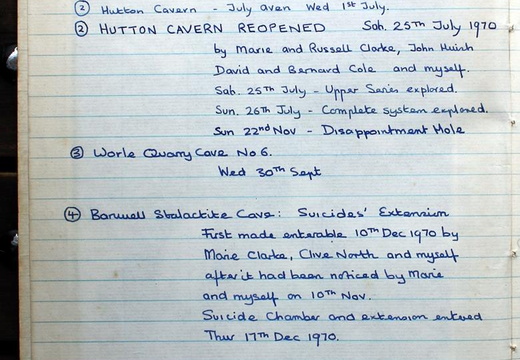 ② Hutton Cavern - July aven Wed 1st July.
② HUTTON CAVERN REOPENED Sat. 25th July 1970
by Marie and Russell Clarke, John Huish
David and Bernard Cole and myself.
Sat. 25th July - Upper Series explored.
Sun. 26th July - Complete system explored.
Sun 22nd Nov - Disappointment Hole
③ Worle Quarry Cave No 6.
Wed 30th Sept
④ Banwell Stalactite Cave: Suicides' Extension
First made enterable 10th Dec 1970 by
Marie Clarke, Clive North and myself
after it had been noticed by Marie
and myself on 10th Nov.
Suicide Chamber and extension entered
Thur 17th Dec 1970.